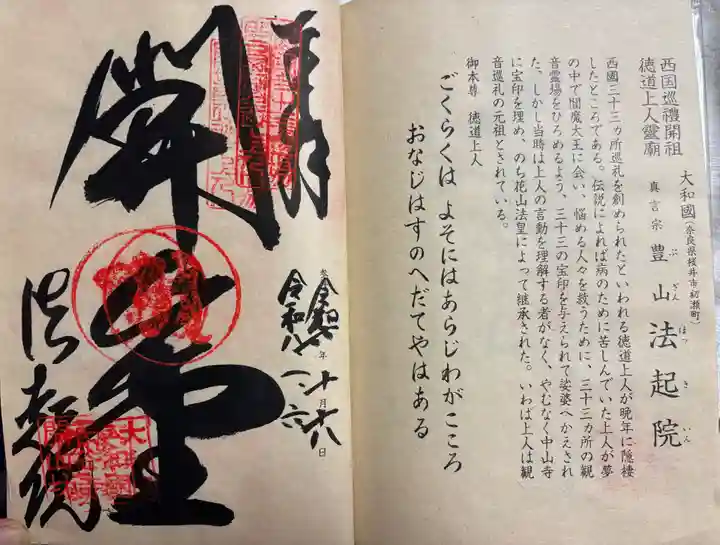 西国巡禮開祖
徳道上人靈廟
大和國(奈良県桜井市初瀬町)
真言宗 豊山 法起院
ぶざん ほっきいん
西國三十三ヵ所巡礼を創められたといわれる徳道上人が晩年に隠棲
したところである。伝説によれば病のために苦しんでいた上人が夢
の中で閻魔大王に会い、悩める人々を救うために、三十三ヵ所の観
音霊場をひろめるよう、三十三の宝印を与えられて娑婆へかえされ
た、しかし当時は上人の言動を理解する者がなく、やむなく中山寺
に宝印を埋め、のち花山法皇によって継承された。いわば上人は観
音巡礼の元祖とされている。
御本尊 徳道上人
ごくらくは よそにはあらじわがこころ
おなじはすのへだてやはある
奉拝
開山堂
年十月十八日
令和八
法起院